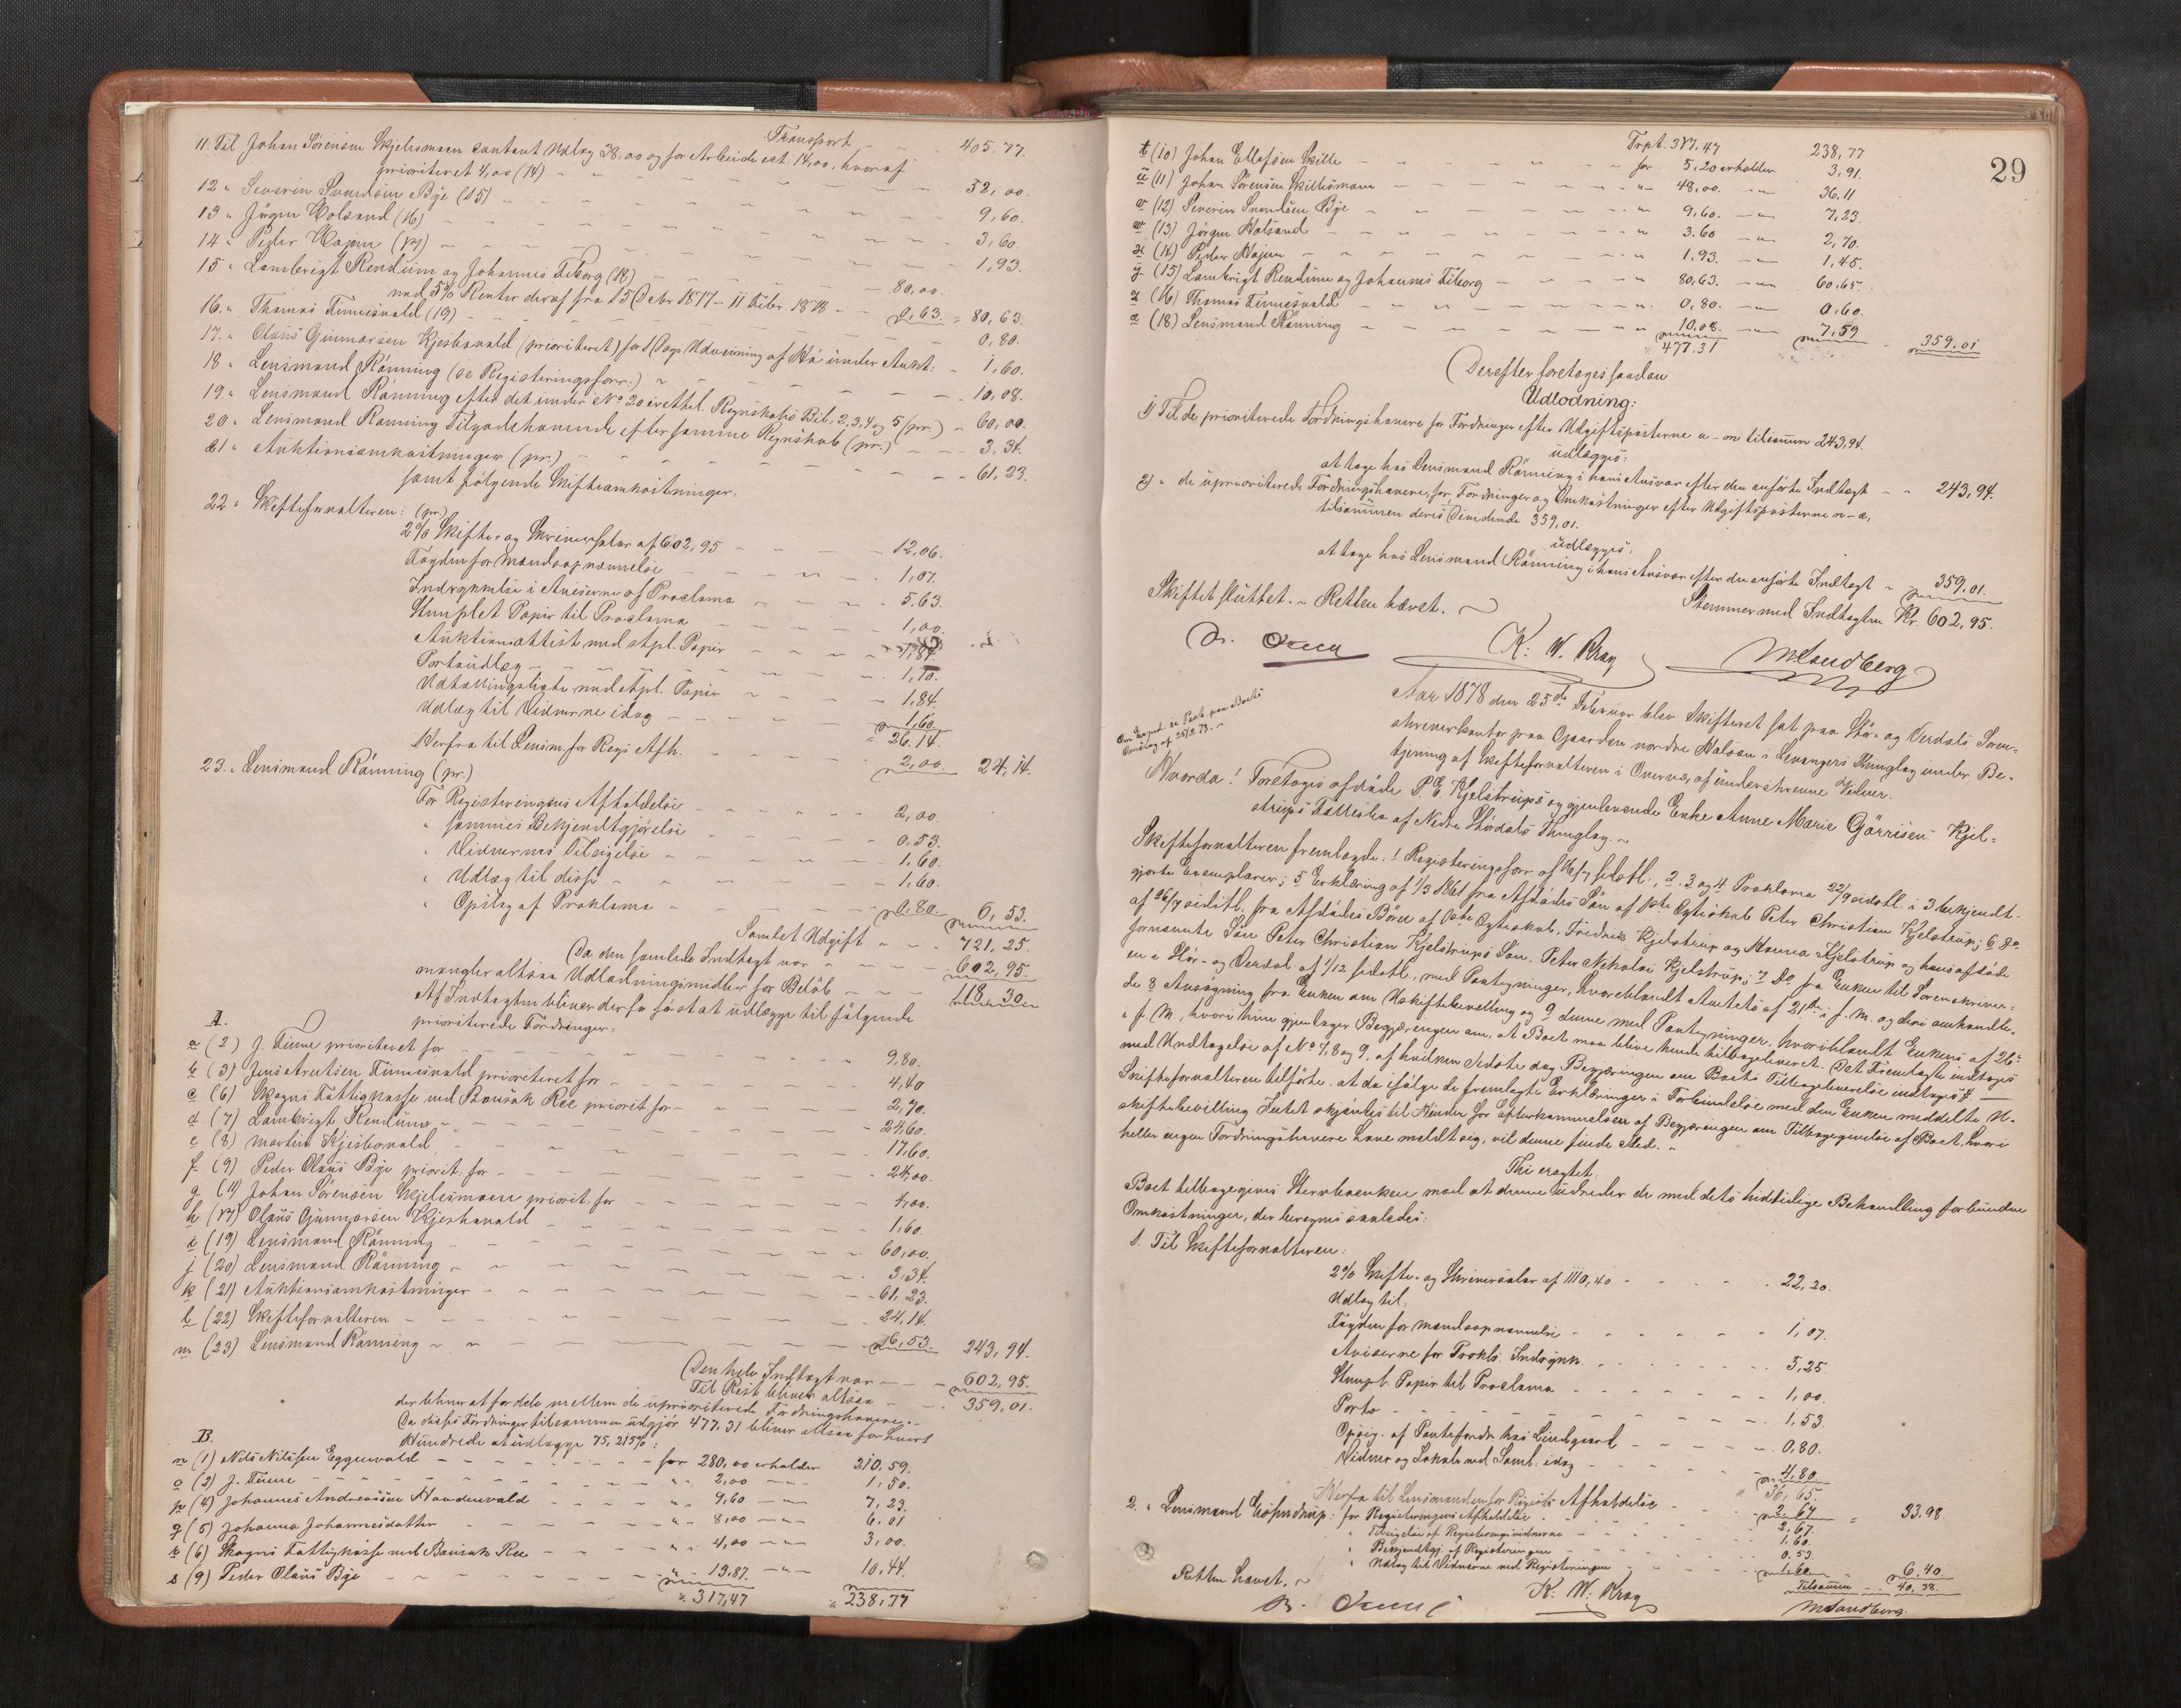 Transport - - 405.77.
11. Til Johan Sörensen Skjelesmoen contant Udlæg 38,00 og for Arbeide eet. 14,00, hvoraf
prioriteret 4,00 (14) - - - 52,00.
12 " Severin Svendsen Bye (15) - - - 9,60.
13 " Jörgen Holsand (16) - - - 3,60.
14 " Peder Hojem (17) - - - 1,93.
15 " Lambrigt Rendum og Johannes Fiborg (18) - - - 80,00.
med 5% Renter deraf fra 15 Decbr 1877 - 11 Febr. 1878 - - 0,63. = 80,63.
16. " Thomas Finnesvald (19) - - - 0,80.
17. " Olaus Gunnarsen Kjeshavald (prioriteret) for 1 Dags Udvisning af Hö under Aukt: - 1,60.
18 " Lensmand Rönning (se Registeringsforr.) - - - 10,08.
19 " Lensmand Rönning efter det under No 20 Regnskabs Bil. 2, 3, 4 og 5 (pr.) - 60,00.
20 " Lensmand Rönning Tilgodehavende efter samme Regnskab (pr.) - - 3,34.
21 " Auktionsomkostninger (pr.) - - - 61,23.
samt følgende Skifteomkostninger:
22 " Skifteforvalteren: (pr.)
2% Skifte- og Skriversalær af 602,95 - - - 12,06.
Fogden for Mandsopnævnelse - - - 1,07.
Indrykkelse i Aviserne af Proclama - - - 5,63.
Stemplet Papir til Proclama - - - 1,00.
Auktionsattest med stpl. Papir - - - 1,84.
Portoudlæg - - - 1,10.
Udlodningsliste med stpl. Papir - - - 1,84.
Udlæg til Vidnerne idag - - - 1,60.
" 26.14.
Herfra til Lensm. for Regs Afh. - - - 2,00. 24,14.
23. " Lensmand Rönning (pr.)
For Registeringens Afholdelse - - - 2,00.
" sammes Bekjendtgjørelse - - - 0.53.
" Vidnernes Tilsigelse - - - 1,60.
" Udlæg til disse - - - 1,60.
" Opslag af Proklama - - - 0,80. 6,53.
Samlet Udgift - - - 721,25.
Da den samlede Indtægt var - - - 602,95.
mangler altsaa Udlodningsmidler for Beløb - - - 118,30
Af Indtægten bliver derfor først at udlægge til følgende
prioriterede Fordringer:
A.
a (2) J. Finne prioriteret for - - - 9,80.
b (3) Jens Finnesvald prioriteret for - - - 4,40
c (6) Skogns Fattigkasse ved Bausak Ree priorit. for - - - 2,70.
d (7) Lambrigt Rendum - - - 24,60.
e (8) Martin Kjeshavald - - - 17,60.
f (9) Peder Olaus Bye priorit. for - - - 24,00.
g (11) Johan Sörensen Skjelesmoen priorit. for - - - 4,00.
h (17) Olaus Gunnarsen Kjeshavald - - - 1,60.
i (19) Lensmand Rönning - - - 60,00.
j (20) Lensmand Rönning - - - 3.34.
k (21) Auktionsomkostninger - - - 61,23.
l (22) Skifteforvalteren - - - 24,14.
m (23) Lensmand Rönning - - - 6,53. 243,94.
Den hele Indtægt var - - - 602,95.
Til Rest bliver altsaa - - - 359,01.
der bliver at fordele mellem de uprioriterede Fordringshavere.
Da disses Fordringer tilsammen udgjør 477,31 bliver altsaa for hvert
Hundrede at udlægge 75,215%:
B.
n (1) Nils Nilssen Eggenvald - - - for 280,00 erholder 210,59.
o (2) J. Finne - - - " 2,00 - " - 1,50.
p (4) Johannes Andreassen Haudenvald - - - " 9,60 - " - 7,23.
q (5) Johanna Johannesdatter - - - " 8,00 - " - 6.01
r (6) Skogns Fattigkasse ved Bausak Ree - - - " 4,00 - " - 3,00.
s (9) Peder Olaus Bye - - - " 13,87. - " - 10,44.
" 317,47 " 238,77
29
Trpt. 317,47 238,77
t (10) Johan Ellefsen Skille - - - for 5,20 erholder 3,91.
u (11) Johan Sörensen Skillesmoen - - - " 48,00. - " - 36.11
v (12) Severin Svendsen Bye - - - " 9,60. - " - 7,23.
w (13) Jörgen Holsand - - - " 3.60 - " - 2,70.
x (14) Peder Hojem - - - " 1,93. - " - 1,45.
y (15) Lambrigt Rendum og Johannes Fiborg - - - " 80,63. - " - 60,65.
z (16) Thomas Finnesvald - - - " 0,80. - " - 0,60.
æ (18) Lensmand Rönning - - - " 10,08. - " - 7,59
477.31 359,01
Derefter foretoges saadan
Udlodning:
1) Til de prioriterede Fordringshavere for Fordringer efter Udgiftsposterne a - m tilsammen 243,94.
udlægges:
at tage hos Lensmand Rönning i hans Ansvar efter den anførte Indtægt - - 243,94.
2) " de uprioriterede Fordringshavere, for Fordringer og Omkostninger efter Udgiftsposterne n - æ,
tilsammen deres Dividende 359,01.
udlægges.
at tage hos Lensmand Rönning i hans Ansvar efter den anførte Indtægt - 359,01.
Stemmer med Indtægten Kr. 602,95.
Skiftet sluttet. - Retten hævet.
K. W. Kray M Sandberg
Aar 1878 den 25de Februar blev Skifteret sat paa Stør- og Verdals Soren-
skriverkontor paa Gaarden nordre Halsan i Levangers Thinglag under Be-
tjening af Skifteforvalteren i Overvær af underskrevne Vidner.
Hvorda! Foretoges afdøde P. E. Kjelstrups og gjenlevende Enke Anne Marie Görrisen Kjel-
strups Fællesbo af Nedre Størdals Thinglag. -
Skifteforvalteren fremlagde: 1 Registeringsforr. af 16/7 sidstl., 2, 3 og 4 Proklama 22/9 sidstl. i 3 bekjendt-
gjorte Exemplarer; 5 Erklæring af 1/3 1861 fra Afdødes Søn af 1ste Egteskab Peter Christian Kjelstrup; 6 Do
af 26/7 sidstl. fra Afdødes Børn af Egteskab, Fredrik Kjelstrup og Hanna Kjelstrup og hans afdøde
fornævnte Søn Peter Christian Kjelstrups Søn, Peter Nikolai Kjelstrup; 7 Do. fra Enken til Sorenskriver-
en i Stør- og Verdal af 1/12 sidstl., med Paategninger, hvoriblandt Amtets af 21de i f. M. og den omhandle-
de 8 Ansøgning fra Enken om Uskiftebevilling og 9 denne med Paategninger, hvoriblandt Enkens af 26de
i f. M., hvori hun gjentager Begjæringen om, at Boet maa blive hende tilbageleveret. Det Fremlagte indtages
med Undtagelse af No 7, 8 og 9, af hvilken sidste dog Begjæringen om Boets Tilbageleverelse indtages.
Skifteforvalteren tilførte, at da ifølge de fremlagte Erklæringer i Forbindelse med den Enken meddelte U-
skiftebevilling Intet skjønnes til Hinder for Efterkommelsen af Begjæringen om Tilbagegivelse af Boet, hvori
heller ingen Fordringshavere have meldt sig, vil denne finde Sted. -
Thi eragtet.
Boet tilbagegives Stervboenken mod at denne udreder de med dets hidtidige Behandling forbundne
Omkostninger, der beregnes saaledes:
1. Til Skifteforvalteren:
2% Skifte- og Skriversalær af 1110,40 - - - 22,20.
Udlæg til.
Fogden for Mandsopnævnelse - - - 1,07.
Aviserne for Prokls. Indrykn. - - - 5,25.
Stempl. Papir til Proclama - - - 1,00.
Porto - - - 1,53.
Opsig. af Pantefordr. hos Lindgaard - - - 0,80.
Vidner og Lokale ved Saml. idag - - - 4,80.
" 36,65.
Herfra til Lensmanden for Regists Afholdelse - 2,67 = 33,98.
2. " Lensmand : for Registeringens Afholdelse - - 2,67.
" Tilsigelse af Registeringsvidnerne - - 1,60.
" Bekjendtgj. af Registeringen - - 0.53
" Udlæg til Vidnerne ved Registeringen - - 1,60 6,40
Tilsammen - - 40,38.
Retten hævet. -
K. W. Kray M Sandberg